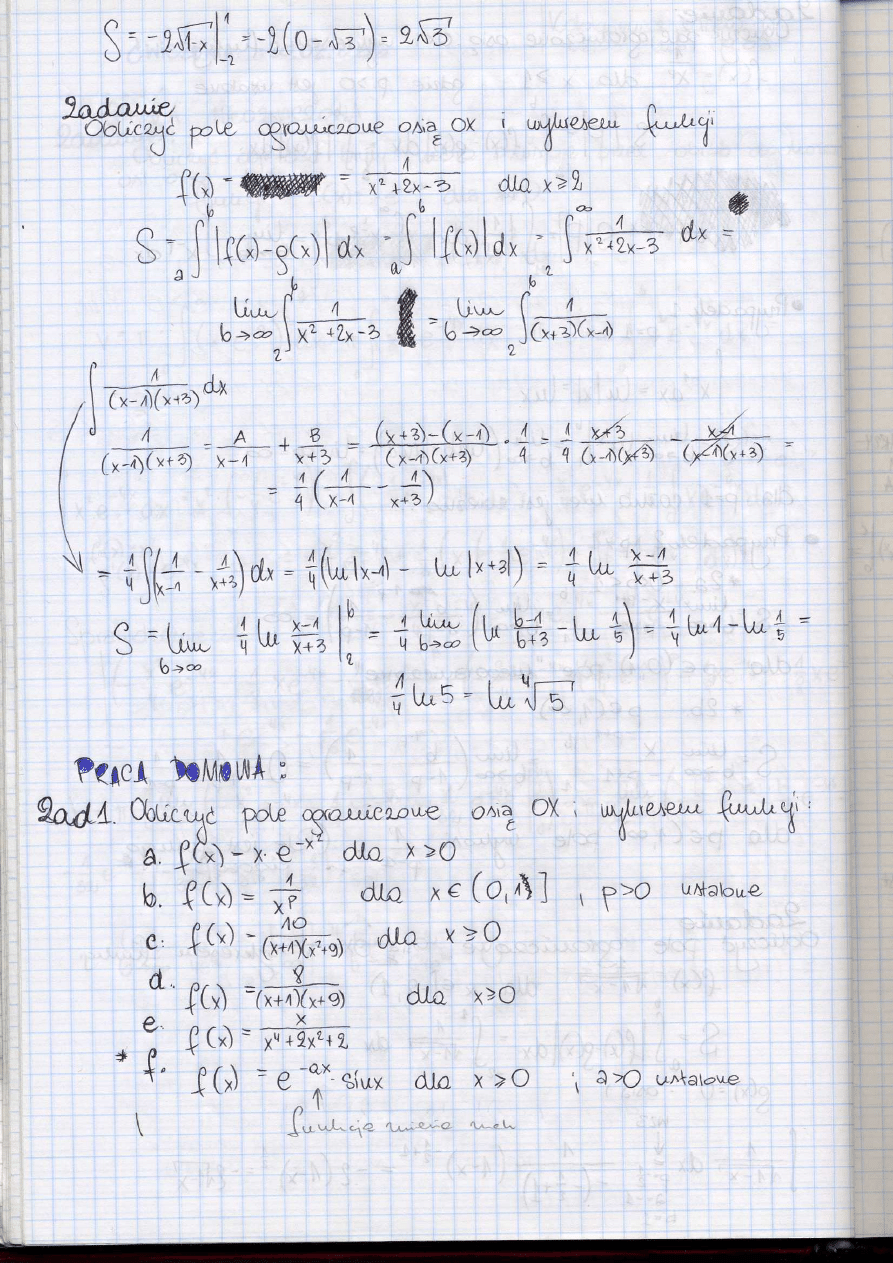 S = -2√1-x |₋₂¹ = -2(0-√3) = 2√3
Zadanie
Obliczyć pole ograniczone osią OX i wykresem funkcji
f(x) = = 1/(x²+2x-3) dla x≥2
S = ∫ₐᵇ |f(x)-g(x)| dx = ∫ₐᵇ |f(x)| dx = ∫₂^∞ 1/(x²+2x-3) dx =
lim b→∞ ∫₂ᵇ 1/(x²+2x-3) = lim b→∞ ∫₂ᵇ 1/((x+3)(x-1))
∫ 1/((x-1)(x+3)) dx
1/((x-1)(x+3)) = A/(x-1) + B/(x+3) = ((x+3)-(x-1))/((x-1)(x+3)) · 1/4 = 1/4 (x+3)/((x-1)(x+3)) - (x-1)/((x-1)(x+3)) =
= 1/4 (1/(x-1) - 1/(x+3))
= 1/4 ∫(1/(x-1) - 1/(x+3)) dx = 1/4 (ln|x-1) - ln|x+3|) = 1/4 ln (x-1)/(x+3)
S = lim b→∞ 1/4 ln (x-1)/(x+3) |₂ᵇ = 1/4 lim b→∞ (ln (b-1)/(b+3) - ln 1/5) = 1/4 ln1 - ln 1/5 =
1/4 ln5 = ln ⁴√5
PRACA DOMOWA:
Zad1. Obliczyć pole ograniczone osią OX i wykresem funkcji:
a. f(x) = x·e^(-x²) dla x≥0
b. f(x) = 1/xᵖ dla x∈(0,1] , p>0 ustalone
c. f(x) = 10/((x+1)(x²+9)) dla x≥0
d. f(x) = 8/((x+1)(x+9)) dla x≥0
e. f(x) = x/(x⁴+2x²+2)
* f. f(x) = e^(-ax) · sinx dla x≥0 ; a>0 ustalone
↑
funkcja